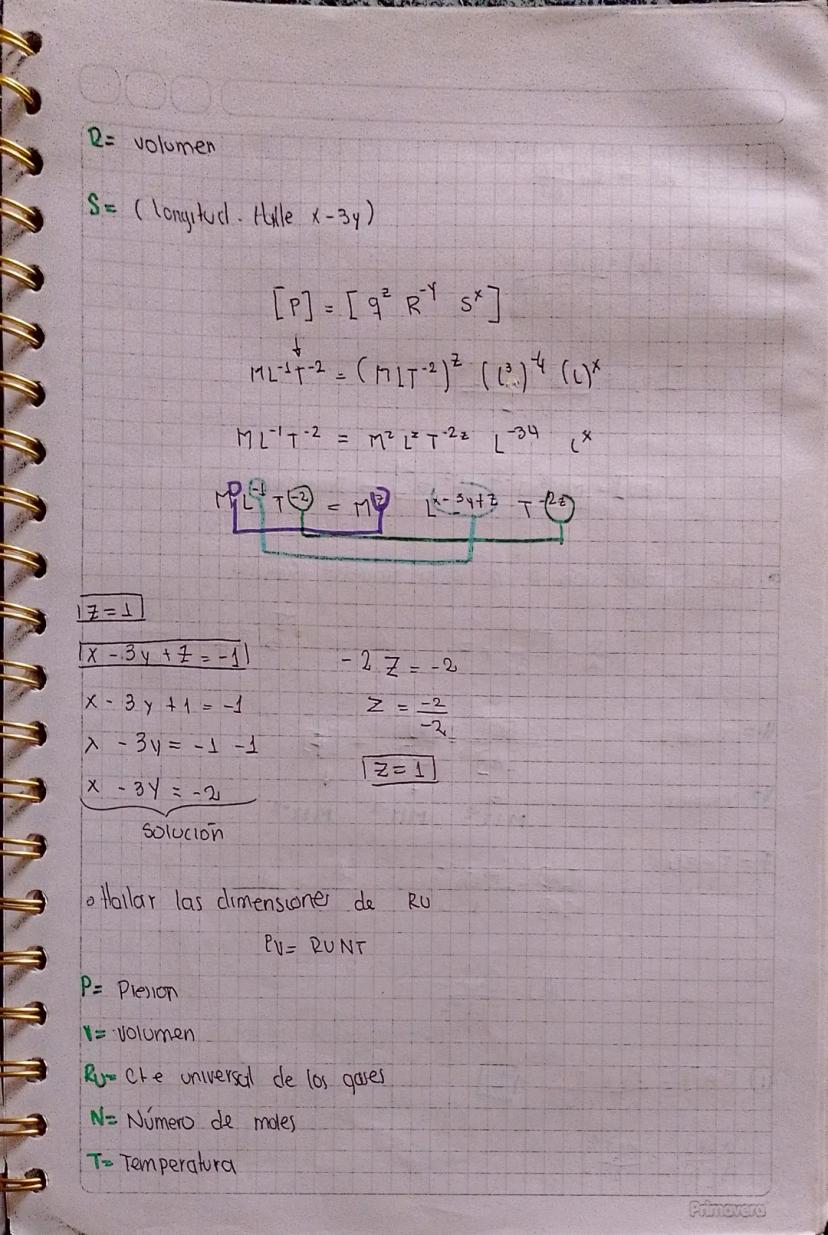 R= volumen
S= (longitud. Halle x-3y)
[P] = [q^z R^-y S^x]
↓
ML^-1T^-2 = (MLT^-2)^z (L^3)^-y (L)^x
ML^-1T^-2 = M^z L^z T^-2z L^-3y L^x
M L^-1 T^-2 = M^z L^x-3y+z T^-2z
z=1
x-3y+z=-1
-2z=-2
x-3y+1=-1
z = -2/-2
x-3y=-1-1
z=1
x-3y=-2
solución
Hallar las dimensiones de RU
PV= RUNT
P= Presion
V= volumen
RU= Cte universal de los gases
N= Número de moles
T= Temperatura
Primavera